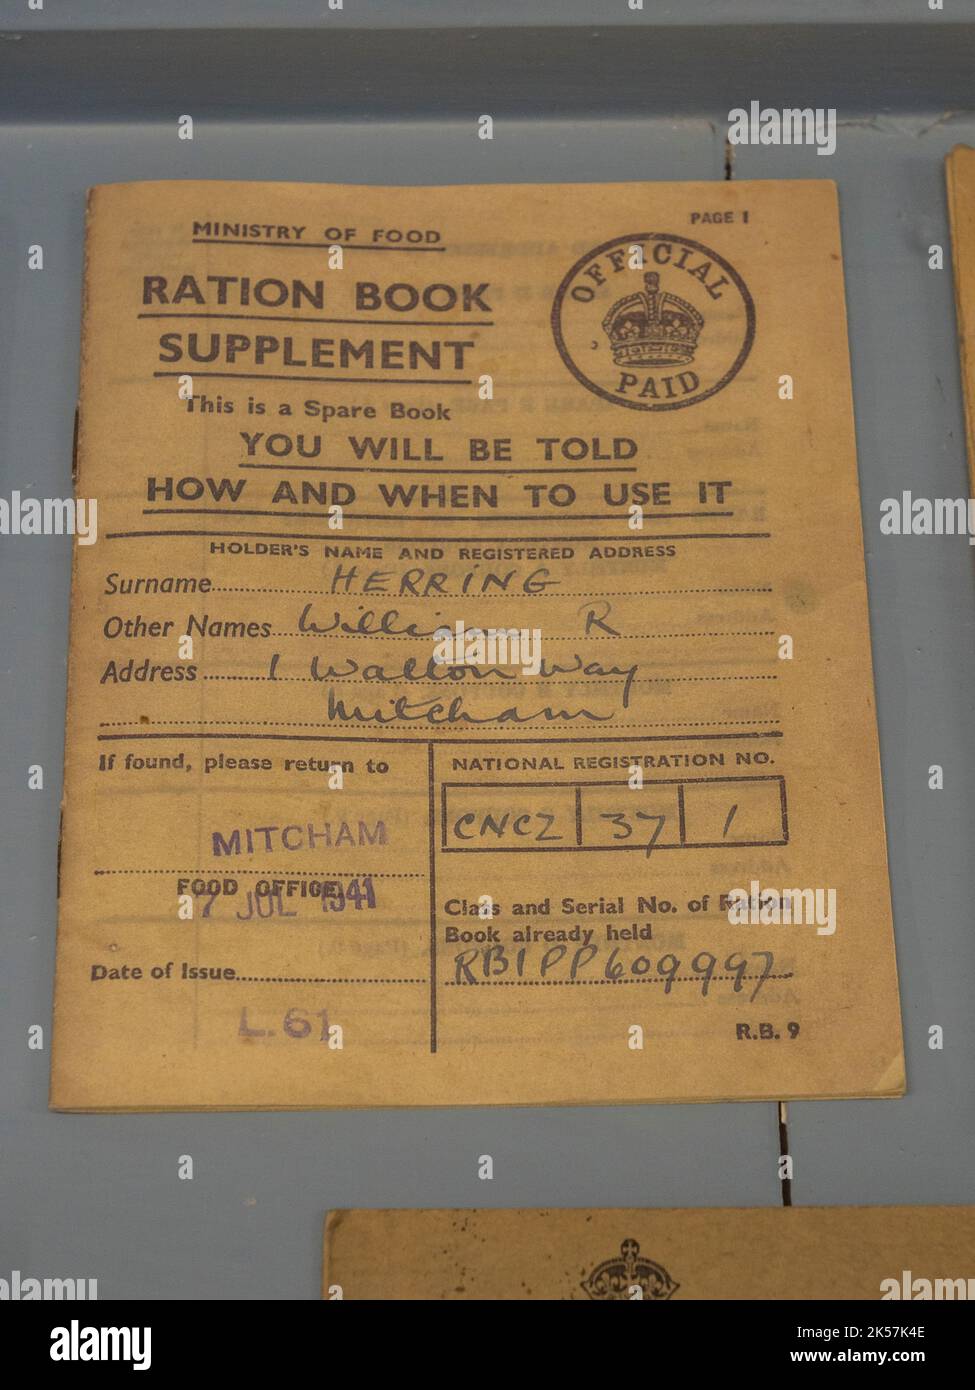 PAGE 1
MINISTRY OF FOOD
OFFICIAL
PAID
RATION BOOK
SUPPLEMENT
This is a Spare Book
YOU WILL BE TOLD
HOW AND WHEN TO USE IT
HOLDER'S NAME AND REGISTERED ADDRESS
Surname HERRING
Other Names William R
Address 1 Walton Way
Mitcham
If found, please return to
MITCHAM
FOOD OFFICE
7 JUL 1941
Date of Issue
L.61
NATIONAL REGISTRATION NO.
CNCZ 37 1
Class and Serial No. of Ration
Book already held
RB1PP609997
R.B. 9
alamy
Image ID: 2K57K4E
www.alamy.com